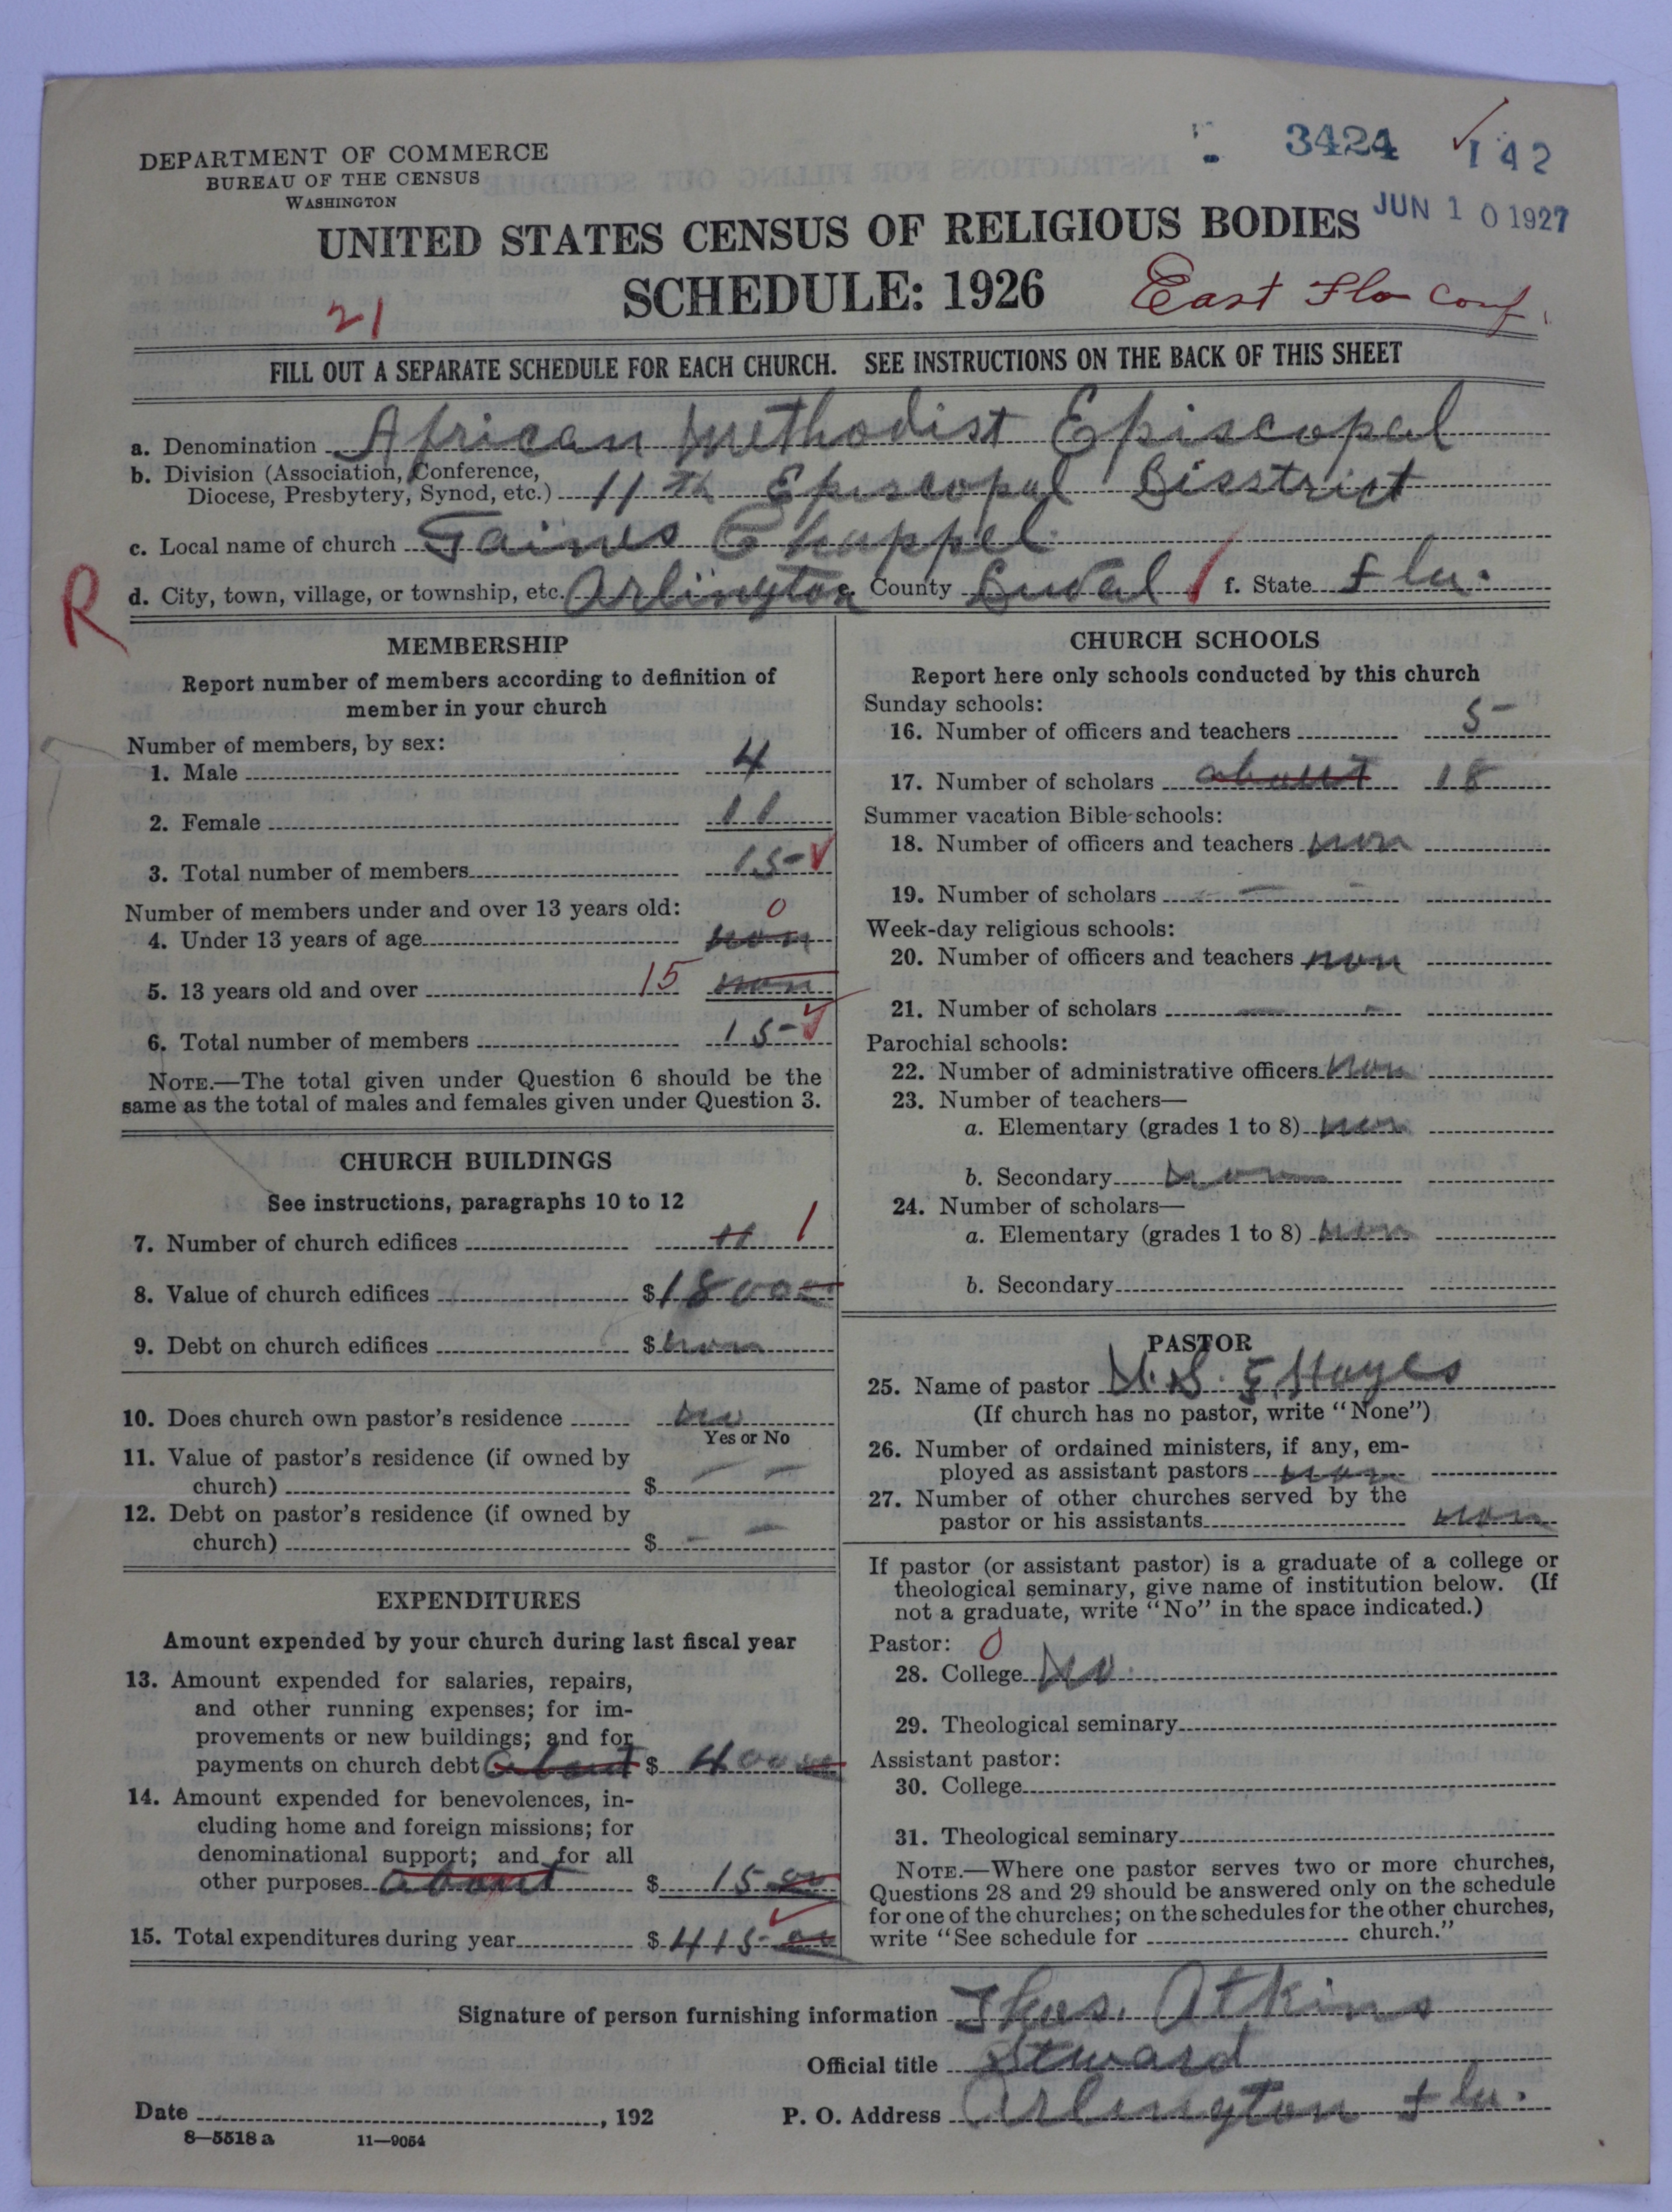 DEPARTMENT OF COMMERCE
BUREAU OF THE CENSUS
WASHINGTON
3424 142
JUN 10 1927
UNITED STATES CENSUS OF RELIGIOUS BODIES
SCHEDULE: 1926
East Fla Conf.
21
FILL OUT A SEPARATE SCHEDULE FOR EACH CHURCH. SEE INSTRUCTIONS ON THE BACK OF THIS SHEET
a. Denomination African Methodist Episcopal
b. Division (Association, Conference,
Diocese, Presbytery, Synod, etc.) 11th Episcopal Disstrict
c. Local name of church Gaines Chappel
R
d. City, town, village, or township, etc. Arlington e. County Duval f. State Fla.
MEMBERSHIP
Report number of members according to definition of
member in your church
Number of members, by sex:
1. Male 4
2. Female 11
3. Total number of members 15
Number of members under and over 13 years old: 0
4. Under 13 years of age non
5. 13 years old and over 15 non
6. Total number of members 15
NOTE.—The total given under Question 6 should be the
same as the total of males and females given under Question 3.
CHURCH BUILDINGS
See instructions, paragraphs 10 to 12
7. Number of church edifices 1
8. Value of church edifices $1800
9. Debt on church edifices $non
10. Does church own pastor's residence no
Yes or No
11. Value of pastor's residence (if owned by
church) $ – –
12. Debt on pastor's residence (if owned by
church) $ – –
EXPENDITURES
Amount expended by your church during last fiscal year
13. Amount expended for salaries, repairs,
and other running expenses; for im-
provements or new buildings; and for
payments on church debt about $ 400 00
14. Amount expended for benevolences, in-
cluding home and foreign missions; for
denominational support; and for all
other purposes about $ 15 00
15. Total expenditures during year $ 415 00
CHURCH SCHOOLS
Report here only schools conducted by this church
Sunday schools:
16. Number of officers and teachers 5
17. Number of scholars about 18
Summer vacation Bible schools:
18. Number of officers and teachers non
19. Number of scholars – – –
Week-day religious schools:
20. Number of officers and teachers non
21. Number of scholars – –
Parochial schools:
22. Number of administrative officers non
23. Number of teachers—
a. Elementary (grades 1 to 8) non
b. Secondary non
24. Number of scholars—
a. Elementary (grades 1 to 8) non
b. Secondary
PASTOR
25. Name of pastor Hayes
(If church has no pastor, write "None")
26. Number of ordained ministers, if any, em-
ployed as assistant pastors non
27. Number of other churches served by the
pastor or his assistants non
If pastor (or assistant pastor) is a graduate of a college or
theological seminary, give name of institution below. (If
not a graduate, write "No" in the space indicated.)
Pastor: 0
28. College No
29. Theological seminary
Assistant pastor:
30. College
31. Theological seminary
NOTE.—Where one pastor serves two or more churches,
Questions 28 and 29 should be answered only on the schedule
for one of the churches; on the schedules for the other churches,
write "See schedule for church."
Signature of person furnishing information Thos. Atkins
Official title Steward
Date , 192 P. O. Address Arlington Fla.
8—5518 a 11—9054